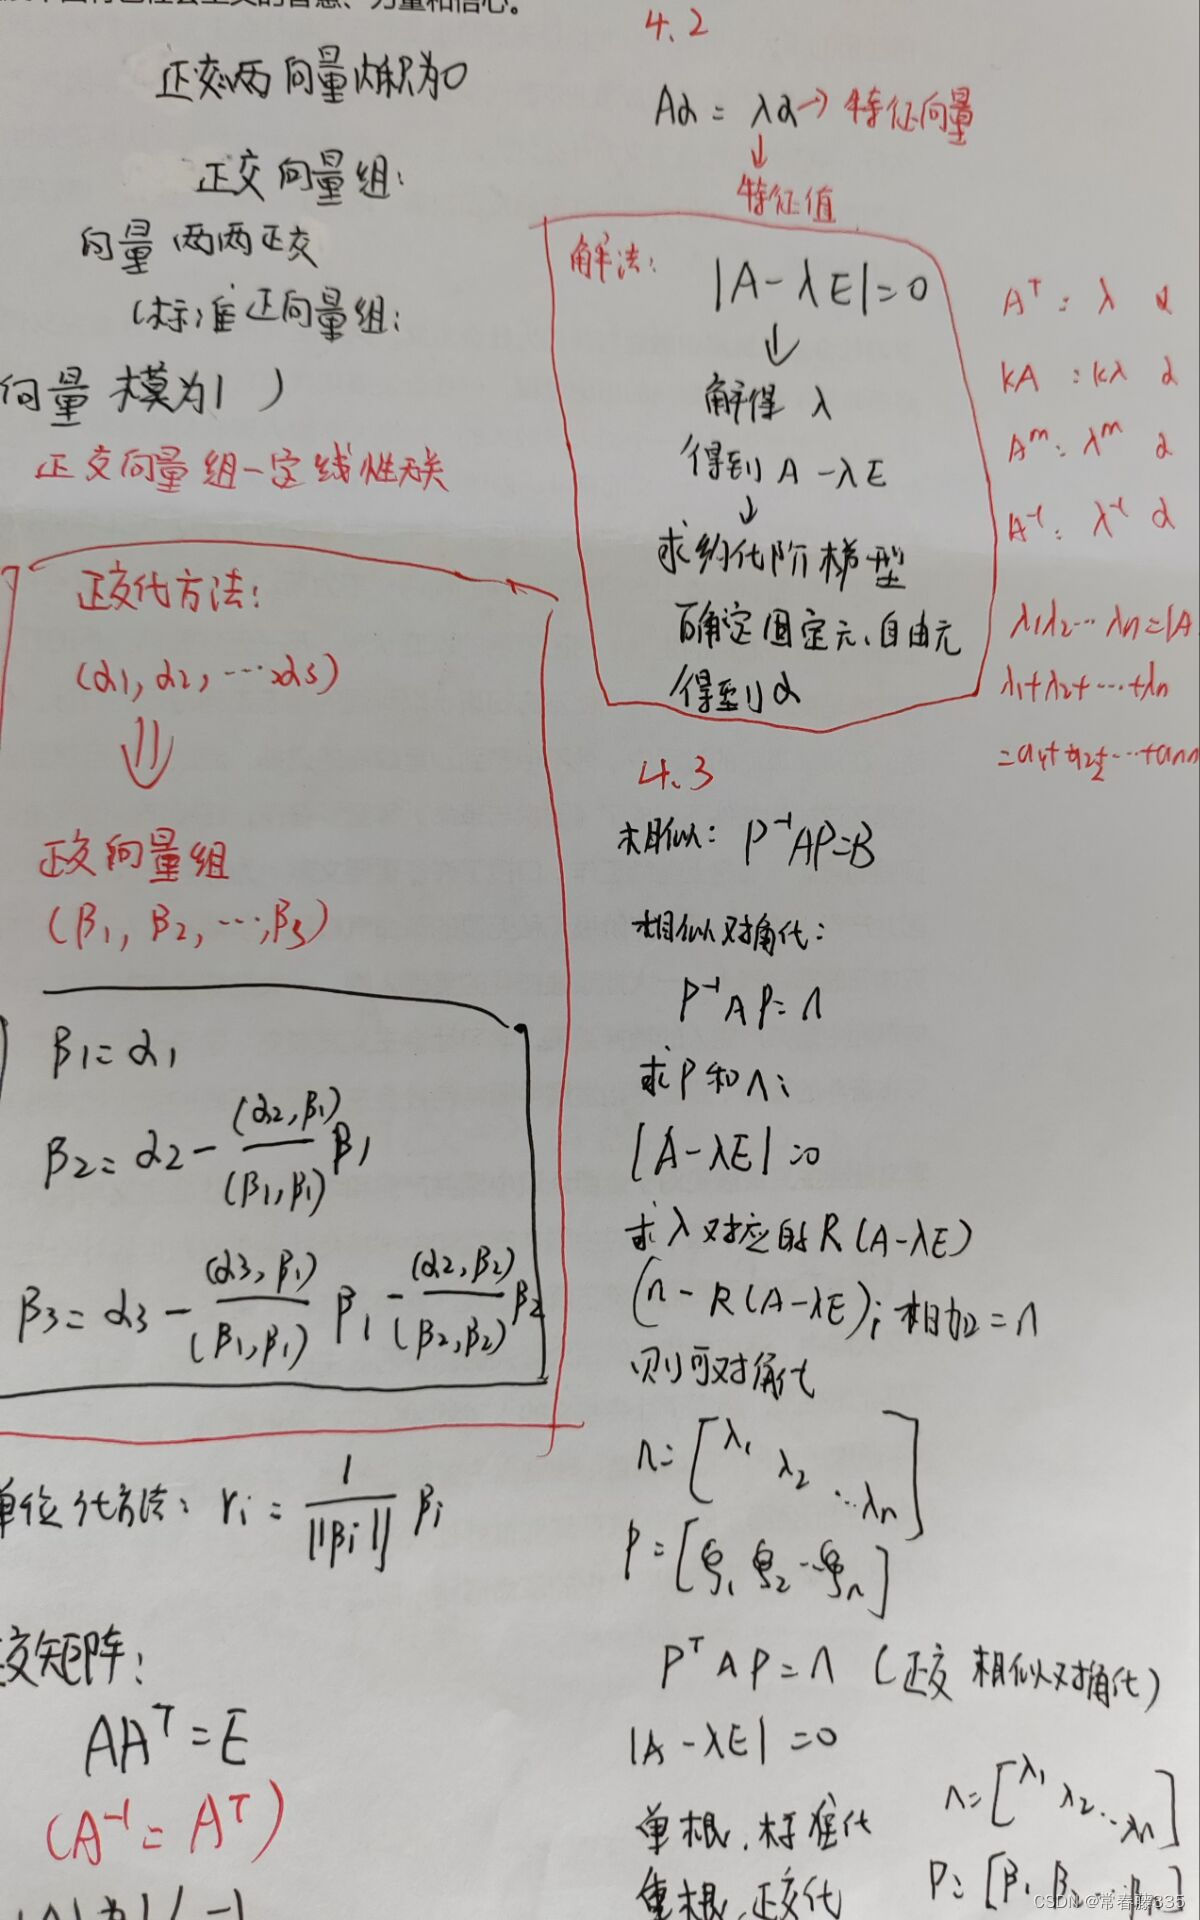 正交:两向量内积为0
正交向量组:
向量两两正交
(标准正向量组:
向量模为1)
正交向量组一定线性无关
正交化方法:
(α1, α2, ···, α3)
⇓
正交向量组
(β1, β2, ···, β3)
β1 = α1
β2 = α2 - (α2, β1)/(β1, β1) β1
β3 = α3 - (α3, β1)/(β1, β1) β1 - (α2, β2)/(β2, β2) β2
单位化方法: γi = 1/||βi|| βi
交矩阵:
AA^T = E
(A^-1 = A^T)
|A|为1/-1
4.2
Aα = λα → 特征向量
↓
特征值
解法:
|A-λE|=0
↓
解得 λ
得到 A-λE
↓
求约化阶梯型
确定固定元、自由元
得到α
A^T : λ α
kA : kλ α
A^m : λ^m α
A^-1 : λ^-1 α
λ1λ2···λn=|A
λ1+λ2+···+λn
=a11+a22+···+ann
4.3
相似: P^-1AP=B
相似对角化:
P^-1AP=Λ
求P和Λ:
|A-λE|=0
求λ对应的R(A-λE)
(n-R(A-λE)); 相加=n
则可对角化
Λ=[λ1 λ2 ···λn]
P=[ξ1 ξ2 ···ξn]
P^TAP=Λ (正交相似对角化)
|A-λE|=0
单根,标准化
重根,正交化
Λ=[λ1 λ2 ···λn]
P=[β1 β2 ···βn]
CSDN @常春藤335